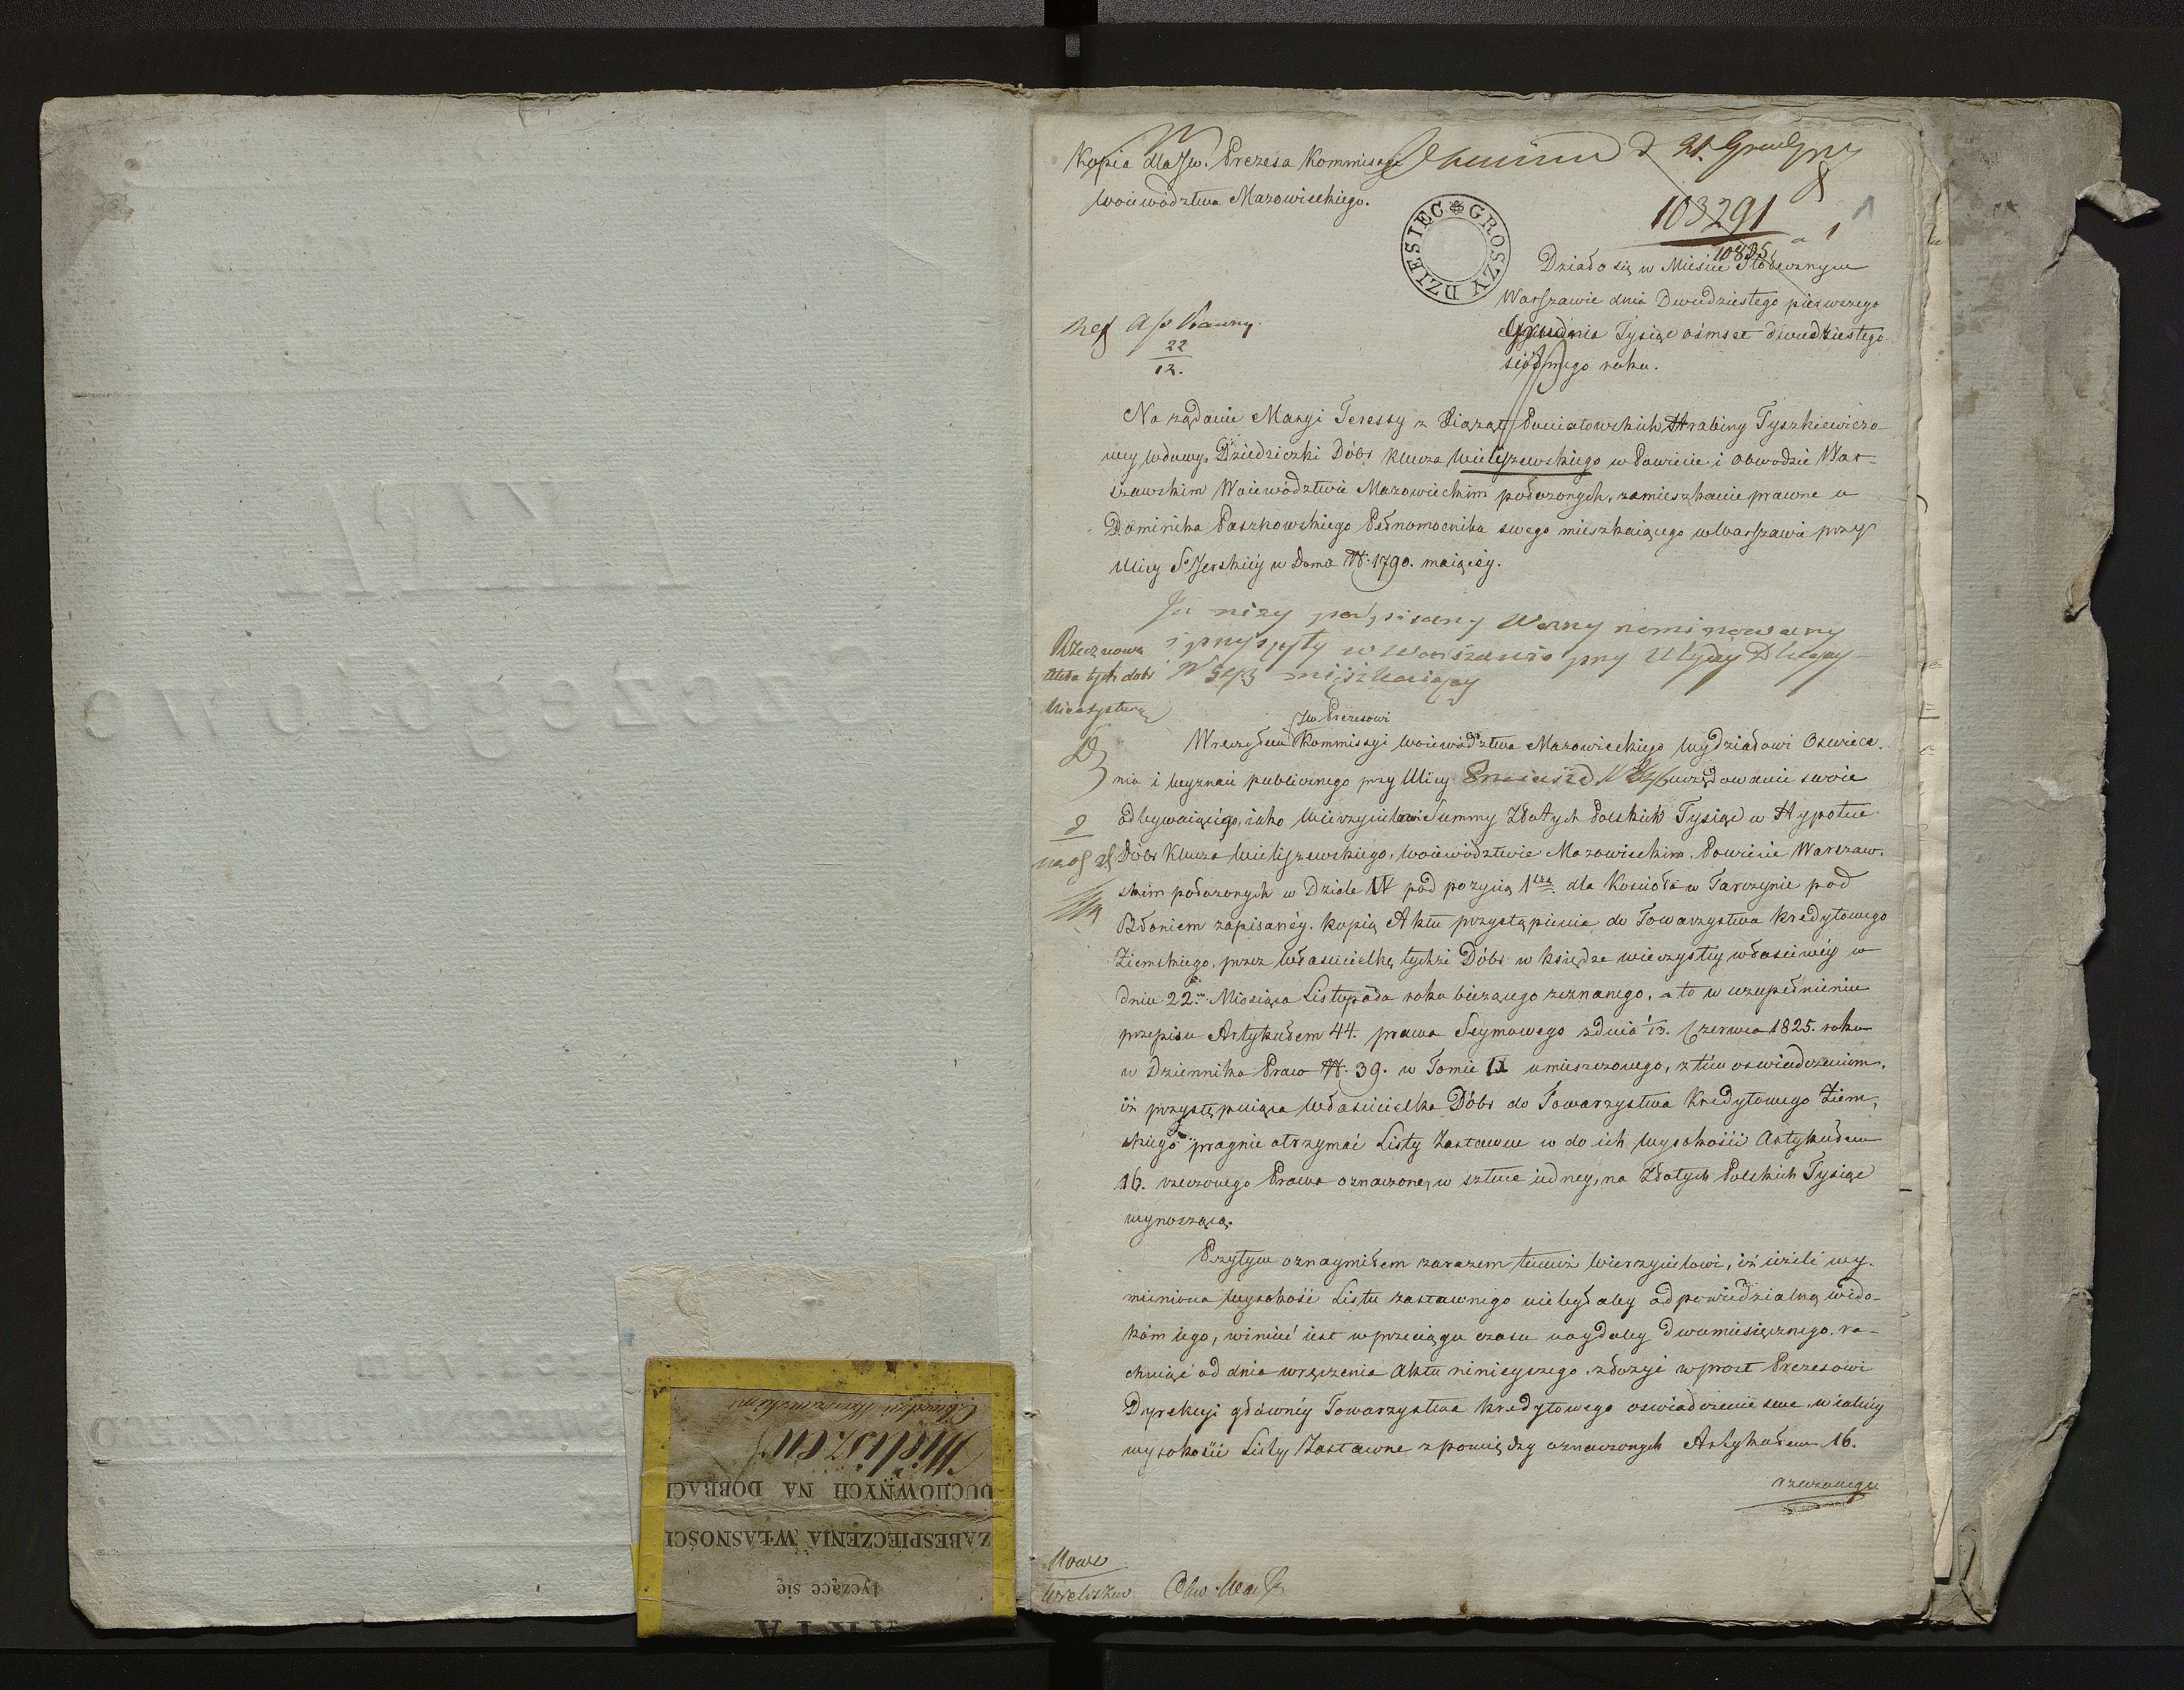 AKTA
Szczegółowe
AKTA
tyczące się
ZABESPIECZENIA WŁASNOŚCI
DUCHOWNYCH NA DOBRACH
Wieliszew
Obwodzie Warszawskim
Kopia dla JW. Prezesa Kommissyi
Woiewództwa Mazowieckiego.
d 21. Grudnia
103291
10825
1
DZIESIĘC GROSZY
Działo się w Mieście Stółecznym
Warszawie dnia Dwudziestego pierwszego
Grudnia Tysiąc ośmset dwudziestego
siódmego roku.
22
12.
Na żądanie Maryi Teressy z Xiążąt Poniatowskich Hrabiny Tyszkiewiczo-
wey wdowy, Dziedziczki Dóbr Klucza Wieliszewskiego w Powiecie i Obwodzie War-
szawskim Woiewództwie Mazowieckim położonych, zamieszkanie prawne u
Dominika Paszkowskiego Pełnomocnika swego mieszkaiącego w Warszawie przy
Ulicy Sto Jerskiéy w Domu N. 1790. maiącéy.
Ja niżey podpisany Woźny nominowany
i przysięgły w Warszawie przy Ulicy Długiey
mieszkaiący
Rzeczowe
Akta tych dobr
nieexystuią
JW Prezesowi
Wręczyłem Kommissyi Woiewództwa Mazowieckiego Wydziałowi Oświece-
nia i Wyznań publicznego przy Ulicy urzędowanie swoie
odbywaiącégo, iako Wierzycielowi Summy Złotych Polskich Tysiąc w Hypotece
Dóbr Klucza Wieliszewskiego, Woiewództwie Mazowieckim, Powiecie Warszaw-
skim położonych w Dziale IV pod pozycią 1szą dla Kościoła w Tarczynie pod
Błoniem zapisanéy, kopią Aktu przystąpienia do Towarzystwa Kredytowego
Ziemskiego, przez Właścicielkę tychże Dóbr w księdze wieczystéy właściwéy w
dniu 22m Miesiąca Listopada roku bieżącego zeznanego, a to w uzupełnieniu
przepisu Artykułem 44. prawa Seymowego z dnia 1/13. Czerwca 1825. roku
w Dzienniku Praw N. 39. w Tomie IX umieszczonego, z tém oswiadczeniem,
iż przystępuiąca Właścicielka Dóbr do Towarzystwa Kredytowego Ziem-
skiego pragnie otrzymać Listy Zastawne w do ich wysokości Artykułem
16. rzeczonego Prawa oznaczone, w sztuce iedney, na Złotych Polskich Tysiąc
wynoszącą.
Przytym oznaymiłem zarazem temuż Wierzycielowi, iż ieżeli wy-
mieniona wysokość Listu zastawnego nie byłaby odpowiedzialną wido-
kóm iego, winien iest w przeciągu czasu naydaley dwumiesięcznego, ra-
chuiąc od dnia wręczenia Aktu ninieyszego, złożyć wprost Prezesowi
Dyrekcyi główney Towarzystwa Kredytowego oswiadczenie swe, w iakiéy
wysokości Listy Zastawne z pomiędzy oznaczonych Artykułem 16.
rzeczonego
Nowe
Wieliszew